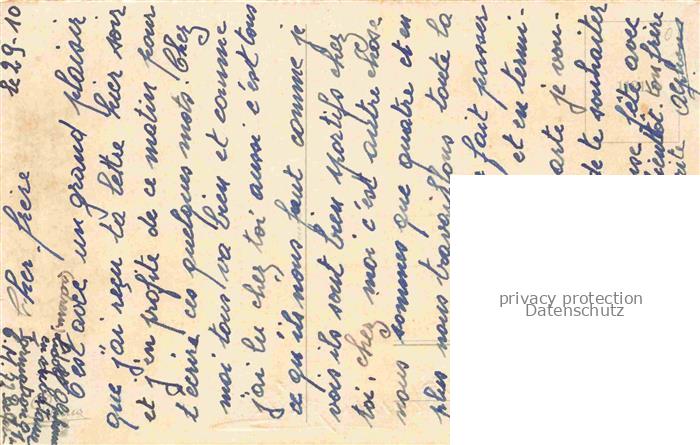 le 29-10
Cher frère
C'est avec un grand plaisir
que j'ai reçu ta lettre hier soir
et j'en profite de ce matin pour
t'écrire ces quelques mots. Chez
moi tous va bien et comme
j'ai lu chez toi aussi c'est tous
ce qu'ils nous faut comme je
vois ils sont bien sportifs chez
toi. chez moi c'est autre chose
nous sommes que quatre et en
plus nous travaillons toute la
fait passer
et en termi-
arte je vou-
de te souhaiter
use fête avec
bientôt. ton frère
Alphonse
privacy protection
Datenschutz